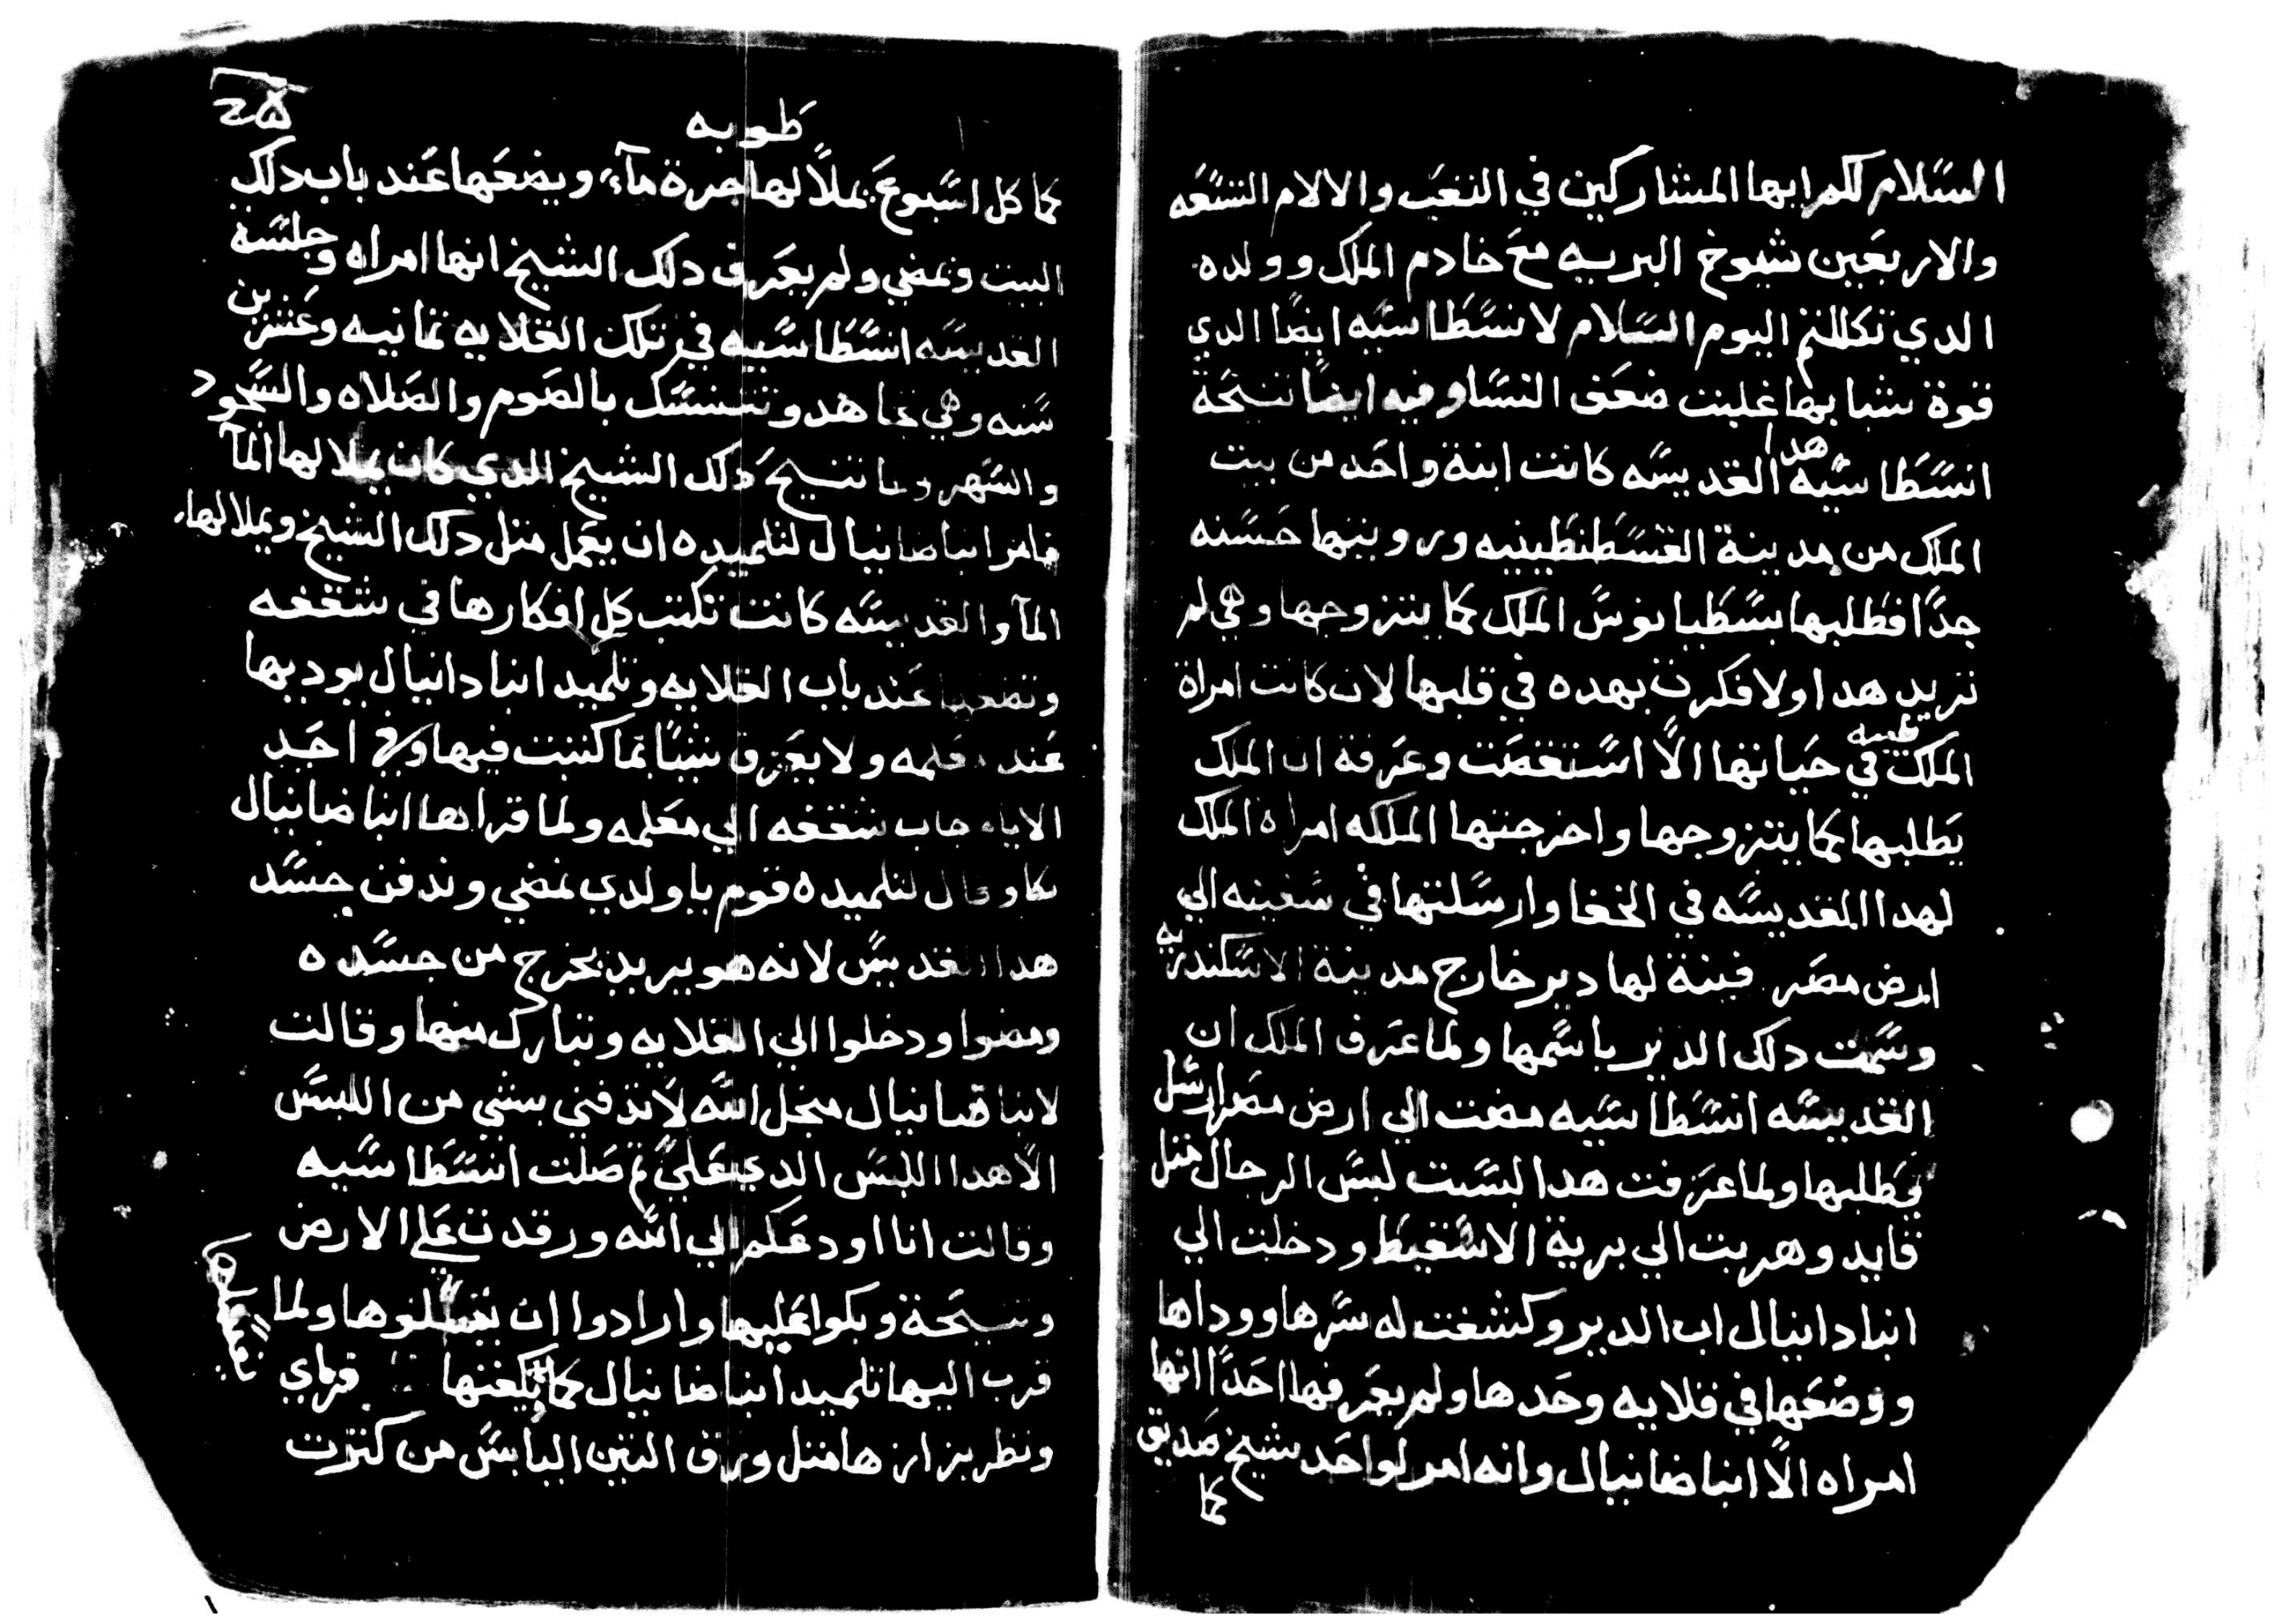 السلام لكم ايها المشاركين في التعب والالام التسعه
والاربعين شيوخ البريه مع خادم الملك وولده
الدي تكللتم اليوم السلام لانسطاسيه ايضا الدي
قوة شبابها غلبت ضعف النسا وفيه ايضا تنيحة
انسطاسيه هدا القديسه كانت ابنة واحد من بيت
الملك من مدينة القسطنطينيه ورويتها حسنه
جدا فطلبها يسطيانوس الملك كما يتزوجها وهي لم
تريد هدا ولا فكرت بهده في قلبها لان كانت امراة
الملك طيبه في حياتها الا استغضت وعرفة ان الملك
يطلبها كما يتزوجها واخرجتها الملكه امراة الملك
لهدا المقديسه في الخفا وارسلتها في سفينه الي
ارض مصر فبنة لها دير خارج مدينة الاسكندريه
وسمت دلك الدير باسمها ولما عرف الملك ان
القديسه انسطاسيه مضت الي ارض مصر ارسل
يطلبها ولما عرفت هدا لبست لبس الرجال متل
قايد وهربت الي برية الاسقيط ودخلت الي
انبا دانيال اب الدير وكشفت له سرها ووداها
ووضعها في قلايه وحدها ولم يعرفها احدا انها
امراه الا انبا ضانيال وانه امر لواحد شيخ صديق
كما
طوبه
كما كل اسبوع يملا لها جرة مآء ويضعها عند باب دلك
البيت ويمضي ولم يعرف دلك الشيخ انها امراه وجلسة
القديسه انسطاسيه في تلك القلايه تمانيه وعشرين
سنه وهي تجاهد وتتنسك بالصوم والصلاه والسجود
والسهر ولما تنيح دلك الشيخ الدي كان يملا لها المآ
فامر انبا ضانيال لتلميده ان يعمل متل دلك الشيخ ويملا لها
المآ والقديسه كانت تكتب كل افكارها في شقفه
وتضعها عند باب القلايه وتلميد انبا دانيال يوديها
عند معلمه ولا يعرف شيا بما كتبت فيها وفي احد
الايام جاب شقفه الي معلمه ولما قراها انبا ضانيال
بكا وقال لتلميده قوم يا ولدي نمضي وندفن جسد
هدا القديس لانه هو يريد يخرج من جسده
ومضوا ودخلوا الي القلايه وتبارك منها وقالت
لانبا ضانيال منجل الله لا تدفني بشي من اللبس
الا هدا اللبس الدي علي تم صلت انسطاسيه
وقالت انا اودعكم الي الله ورقدت علي الارض
وتنيحة وبكوا عليها وارادوا ان يغسلوها ولما
قرب اليها تلميد انبا ضانيال كما يكفنها
ونظر بزازها متل ورق التين اليابس من كترت